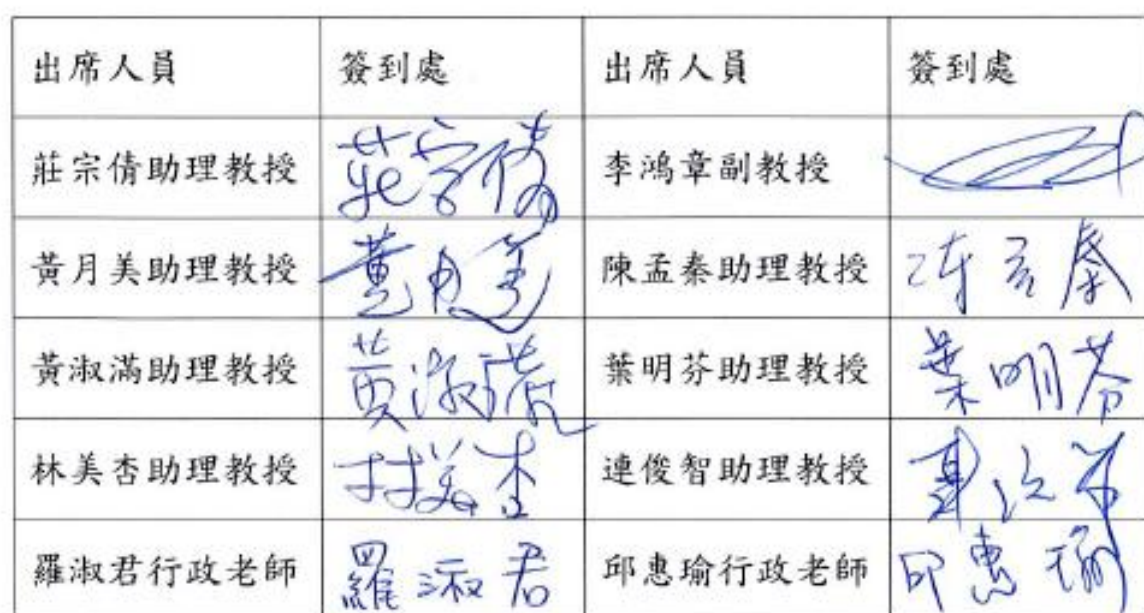 出席人員 簽到處 出席人員 簽到處
莊宗倩助理教授 莊宗倩 李鴻章副教授
黃月美助理教授 黃月美 陳孟秦助理教授 陳孟秦
黃淑滿助理教授 黃淑滿 葉明芬助理教授 葉明芬
林美杏助理教授 林美杏 連俊智助理教授
羅淑君行政老師 羅淑君 邱惠瑜行政老師 邱惠瑜